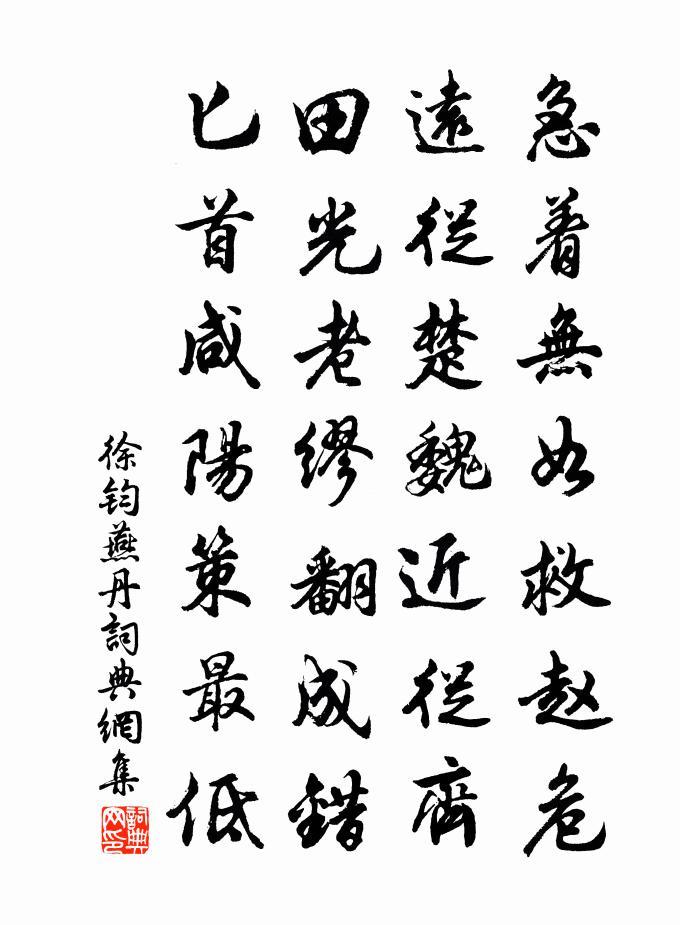 急着無如救赵危
遠從楚魏近從齊
田光老繆翻成錯
匕首咸陽策最低
徐鈞燕丹詞典網集
詞典网印